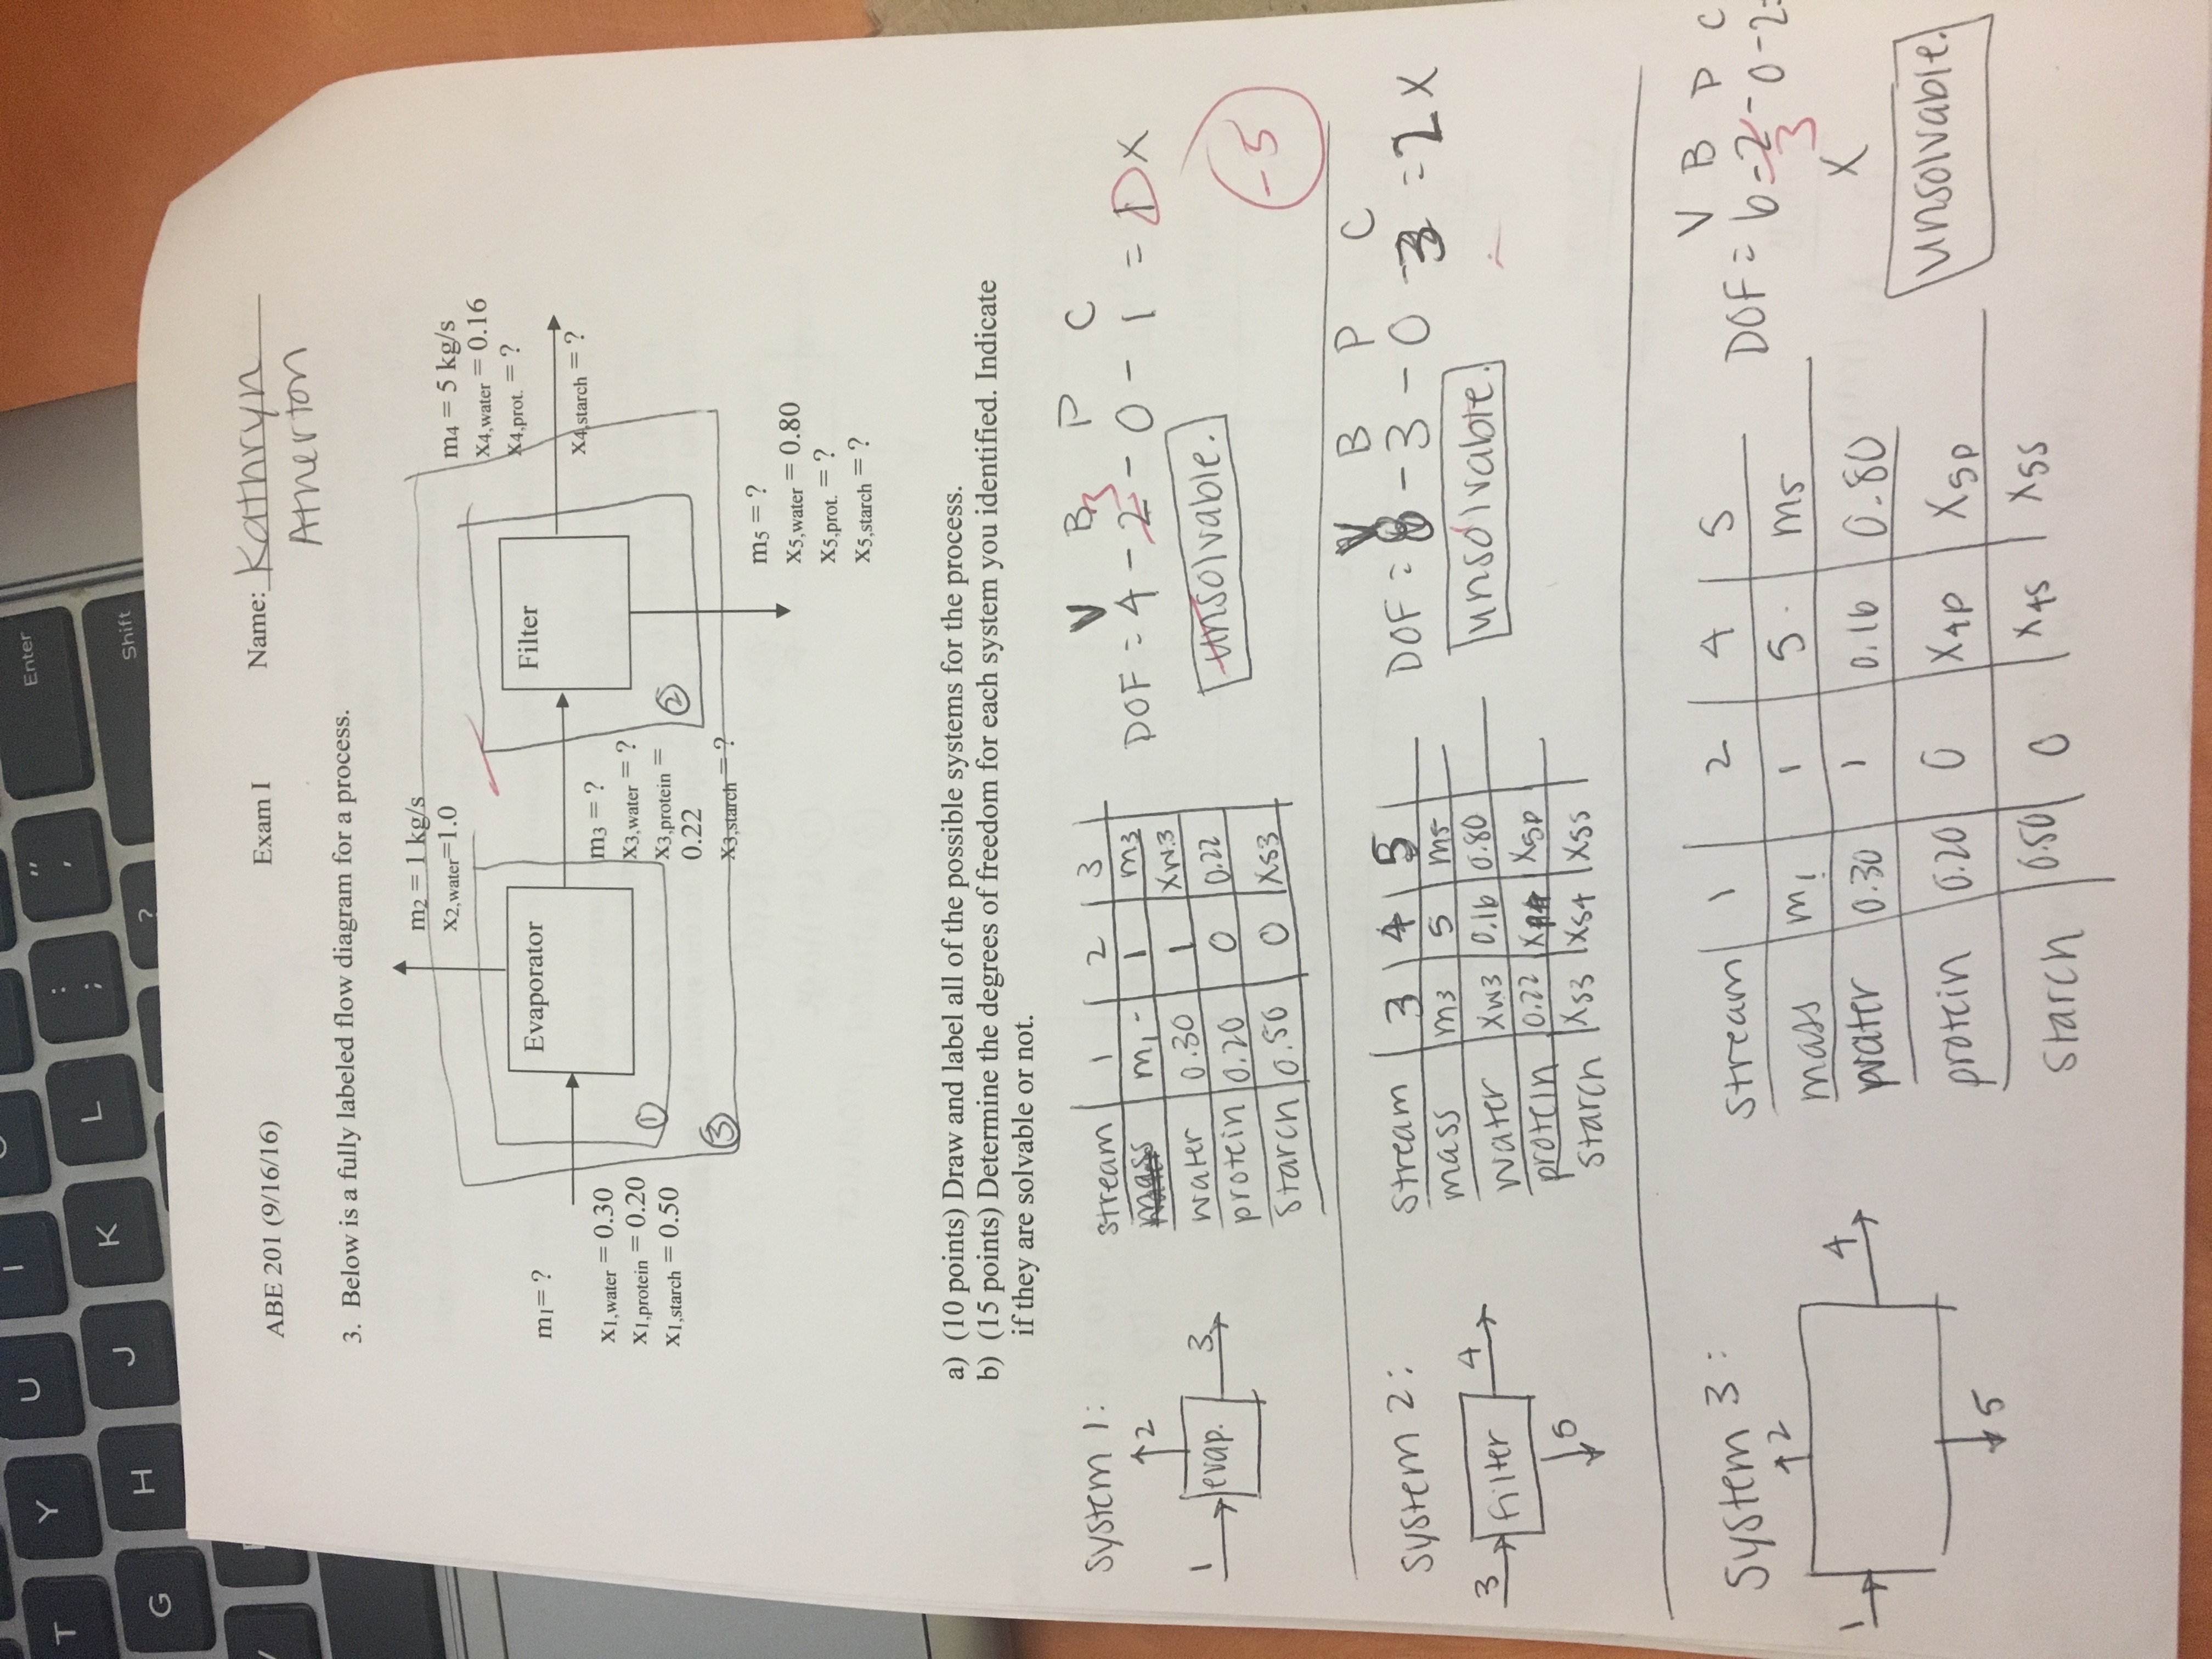 T Y U I
Enter
G H J K L : ; " ,
Shift
?
ABE 201 (9/16/16) Exam I Name: Kathryn
Atherton
3. Below is a fully labeled flow diagram for a process.
m2 = 1 kg/s
x2,water=1.0
m4 = 5 kg/s
x4,water = 0.16
x4,prot. = ?
x4,starch = ?
Evaporator
Filter
m1= ?
x1,water = 0.30
x1,protein = 0.20
x1,starch = 0.50
m3 = ?
x3,water = ?
x3,protein =
0.22
x3,starch = ?
①
②
③
m5 = ?
x5,water = 0.80
x5,prot. = ?
x5,starch = ?
a) (10 points) Draw and label all of the possible systems for the process.
b) (15 points) Determine the degrees of freedom for each system you identified. Indicate
if they are solvable or not.
System 1:
2
1 evap. 3
stream 1 2 3
mass m1 - 1 m3
water 0.30 1 xw3
protein 0.20 0 0.22
starch 0.50 0 xs3
V B P C
3
DOF = 4 - 2 - 0 - 1 = 1 x
unsolvable.
-5
System 2:
3 filter 4
5
stream 3 4 5
mass m3 5 m5
water xw3 0.16 0.80
protein 0.22 x5p
starch xs3 xs4 xs5
V B P C
DOF = 8 - 3 - 0 - 3 = 2 x
unsolvable.
System 3:
2
1 4
5
stream 1 2 4 5
mass m1 1 5 m5
water 0.30 1 0.16 0.80
protein 0.20 0 x4p x5p
starch 0.50 0 x4s x5s
V B P C
DOF = 6 - 2 - 0 - 2 =
3
x
unsolvable.